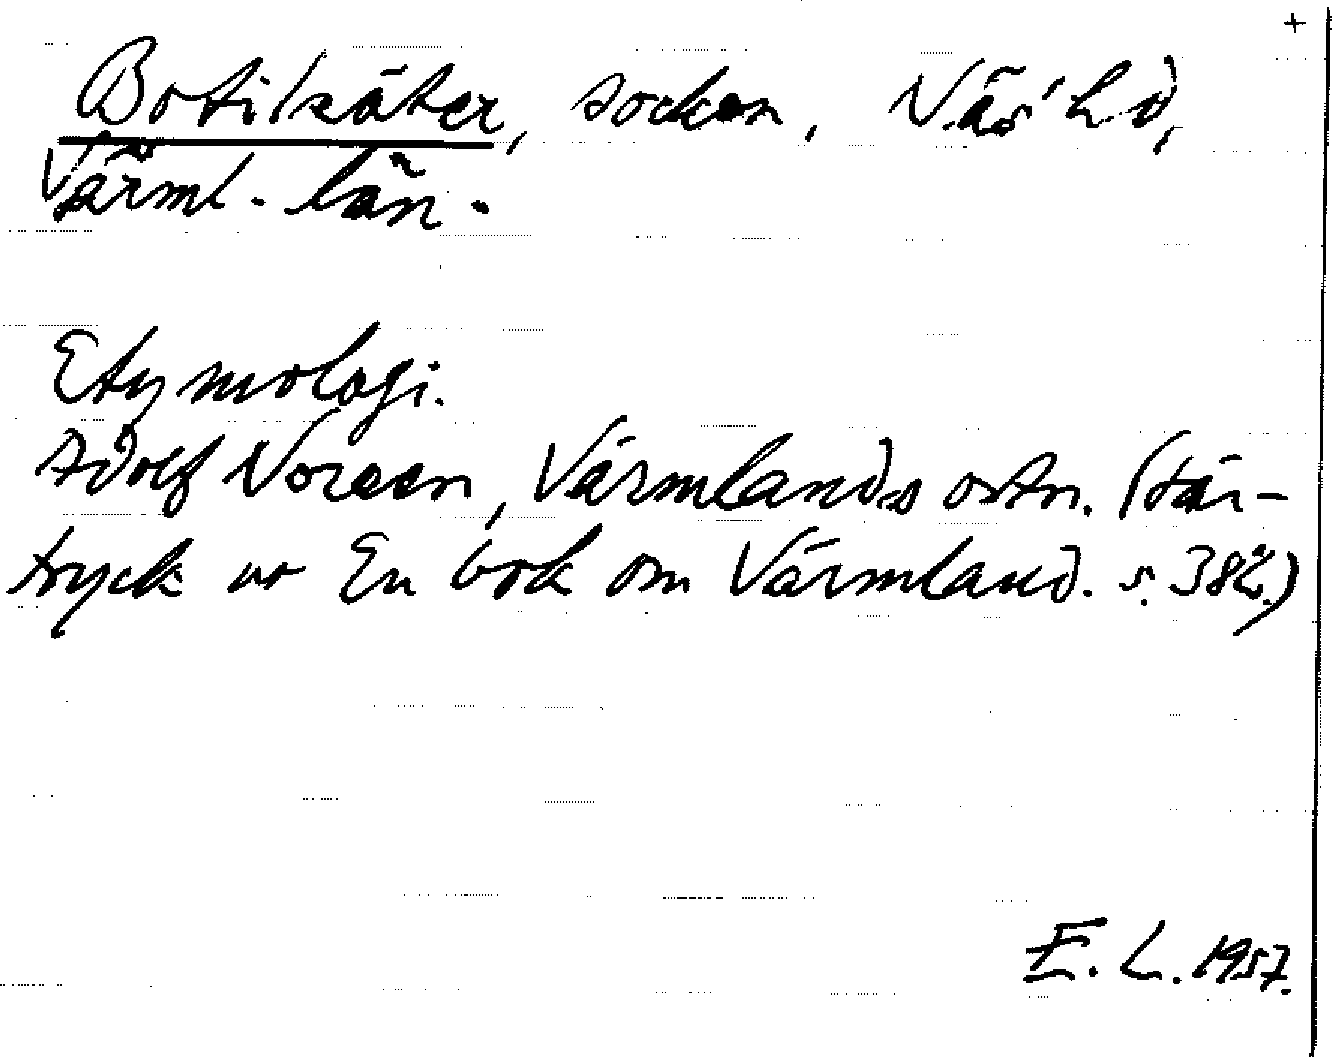 +
Botilsäter, socken, Näs' hd,
Värml. län.
Etymologi.
Adolf Noreen, Värmlands ortn. (Sär-
tryck ur En bok om Värmland. s. 382.)
E. L. 1957.